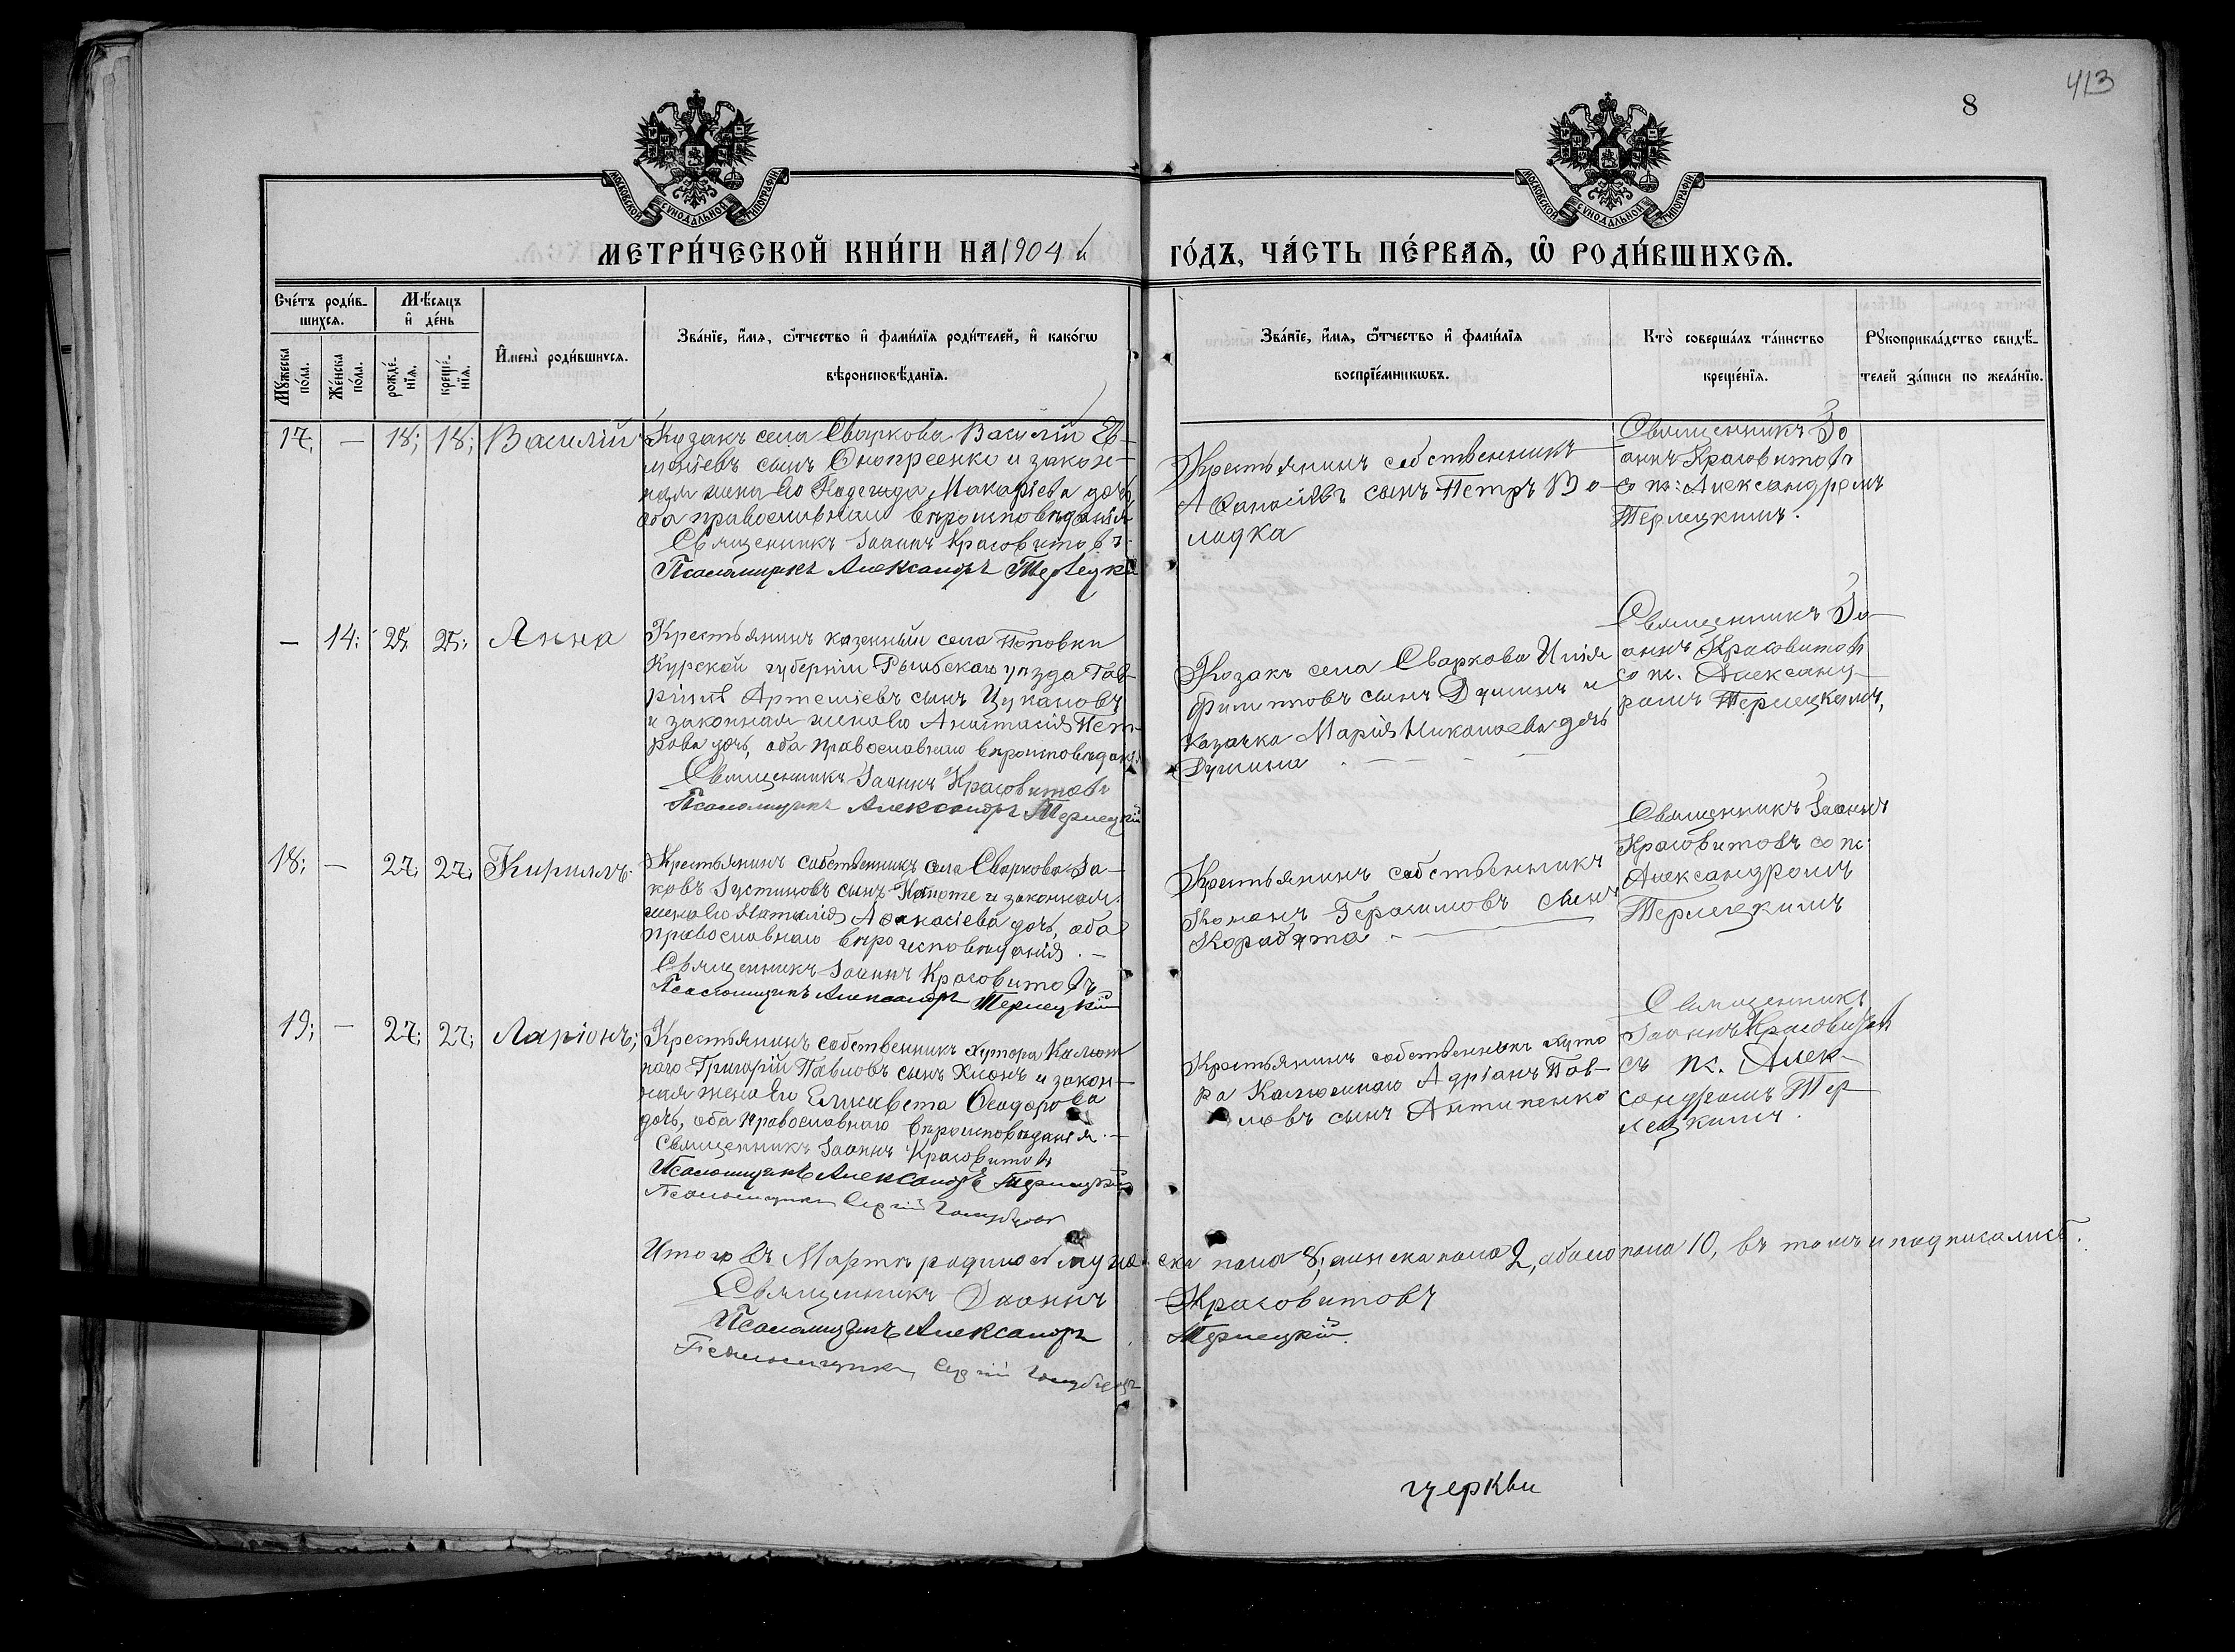 413
8
МОСКОВСКОЙ СѴНОДАЛЬНОЙ ТИПОГРАФІИ
МОСКОВСКОЙ СѴНОДАЛЬНОЙ ТИПОГРАФІИ
МЕТРИ́ЧЕСКОЙ КНИ́ГИ НА 1904 й
ГО́ДЪ, ЧА́СТЬ ПЕ́РВАѦ, Ѽ РОДИ́ВШИХСѦ.
Сче́тъ роди́в-
шихсѧ.
Мꙋ́жеска по́ла.
Же́нска по́ла.
Мѣ́сяцъ
и҆ де́нь
рожде́-
нїѧ.
креще́-
нїѧ.
И҆мена̀ роди́вшихсѧ.
Зва́нїе, и҆́мѧ, ѻ҆́тчество и҆ фами́лїѧ роди́телей, и҆ како́гѡ
вѣроисповѣ́данїѧ.
Зва́нїе, и҆́мѧ, ѻ҆́тчество и҆ фами́лїѧ
воспрїе́мникѡвъ.
Кто̀ соверша́лъ та́инство
креще́нїѧ.
Рꙋкоприкла́дство свидѣ́-
телей за́писи по жела́нїю.
17; — 18; 18; Василій
Козакъ села Сваркова Василій Ев-
сын Онопреенко и закон-
ная жена его Надежда Макаріева дочь,
оба православнаго вѣроисповѣданія
Священникъ Іоаннъ Красовитовъ
Псаломщикъ Александръ Терлецкій
Крестьянинъ собственникъ
Аѳанасіевъ сынъ Петръ Во-
лодка
Священникъ Іо
аннъ Красовитовъ
со пс: Александромъ
Терлецкимъ.
— 14; 25; 25; Анна
Крестьянинъ казенный села Поповки
Курской губерніи Рыльскаго уѣзда Гав-
ріилъ Артеміевъ сынъ Цукановъ
и законная жена его Анастасія Пет-
рова дочь, оба православнаго вѣроисповѣдан:
Священникъ Іоаннъ Красовитовъ
Псаломщикъ Александръ Терлецкій
Козакъ села Сваркова Илія
Филиповъ сынъ Душинъ и
казачка Марія Николаева дочь
Душина
Священникъ Іо-
аннъ Красовитовъ
со пс. Александ-
ромъ Терлецкимъ,
18; — 27; 27; Кириллъ
Крестьянинъ собственникъ села Сваркова Іа-
ковъ Іустиновъ сынъ и законная
жена его Наталія Аѳанасіева дочь, оба
православнаго вѣроисповѣданія. —
Священникъ Іоаннъ Красовитовъ
Псаломщикъ Александръ Терлецкій
Крестьянинъ собственникъ
Кононъ Герасимовъ сынъ
Корабута
Священникъ Іоаннъ
Красовитовъ со пс.
Александромъ
Терлецкимъ
19; — 27; 27; Ларіонъ;
Крестьянинъ собственникъ хутора Калюж
наго Григорій Павловъ сынъ Хлонь и закон-
ная жена его Елисавета Ѳеодорова
дочь, оба православнаго вѣроисповѣданія. —
Священникъ Іоаннъ Красовитовъ
Псаломщикъ Александръ Терлецкій
Псаломщикъ Сергій
Крестьянинъ собственникъ хуто
ра Калюжнаго Адріанъ Пав-
ловъ сынъ Антипенко
Священникъ
Іоаннъ Красовитовъ
съ пс. Алек-
сандромъ Тер-
лецкимъ.
Итого въ Мартѣ родилось муже-ска пола 8, женска пола 2, обоего пола 10, въ томъ и подписались.
Священникъ Іоаннъ Красовитовъ
Псаломщикъ Александръ Терлецкій.
Псаломщикъ Сергій
церкви